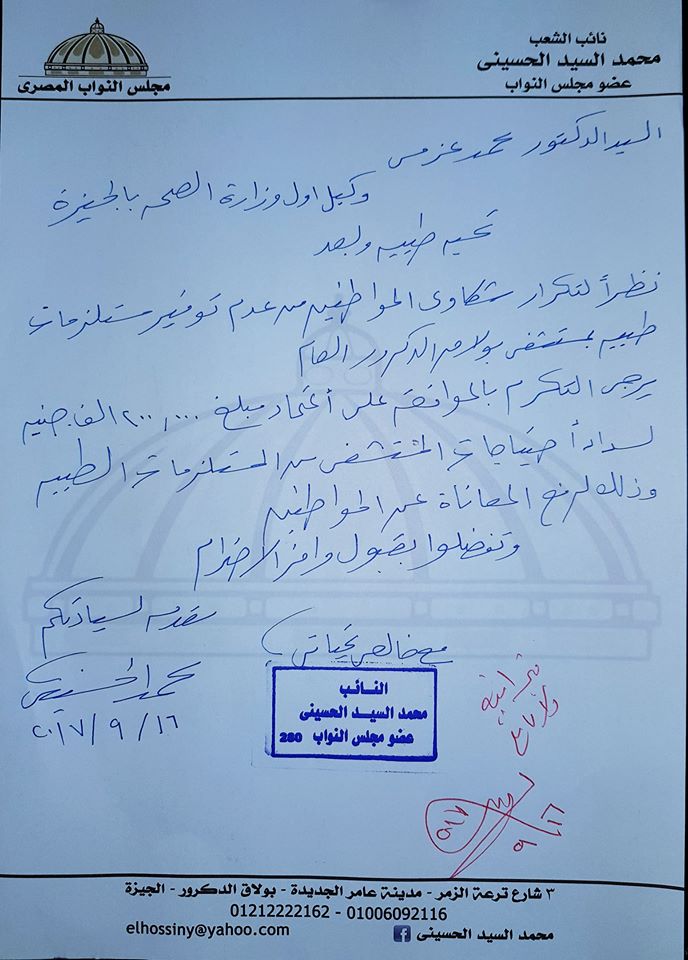 نائب الشعب
محمد السيد الحسينى
عضو مجلس النواب
مجلس النواب المصرى
السيد الدكتور محمد عزمى
وكيل اول وزارة الصحه بالجيزة
تحيه طيبه وبعد
نظراً لتكرار شكاوى المواطنين من عدم توفير مستلزمات
طبيه بمستشفى بولاق الدكرور العام
يرجى التكرم بالموافقه على أعتماد مبلغ ٢٠٠,٠٠٠ الف جنيه
لسداد أحتياجات المستشفى من المستلزمات الطبيه
وذلك لرفع المعاناة عن المواطنين
وتفضلوا بقبول وافر الاحترام
مقدمه لسيادتكم
مع خالص تحياتى
محمد الحسينى
٢٠١٧/٩/١٦
النائب
محمد السيد الحسينى
عضو مجلس النواب 280
٩/١٦
٣ شارع ترعة الزمر - مدينة عامر الجديدة - بولاق الدكرور - الجيزة
01212222162 - 01006092116
elhossiny@yahoo.com
محمد السيد الحسينى